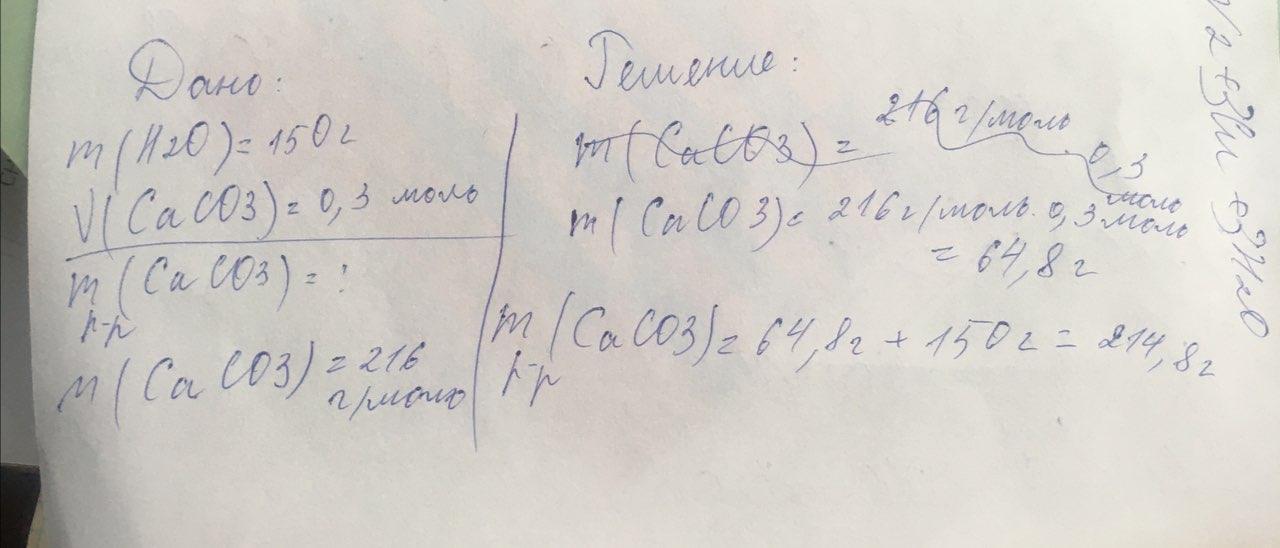 Дано:
m(H2O)=150г
V(CaCO3)=0,3 моль
m(CaCO3)=?
р-р
M(CaCO3)=216
г/моль
Решение:
m(CaCO3)=216 г/моль·0,3
моль
m(CaCO3)=216г/моль·0,3моль
=64,8г
m(CaCO3)=64,8г+150г=214,8г
р-р
+3H2O